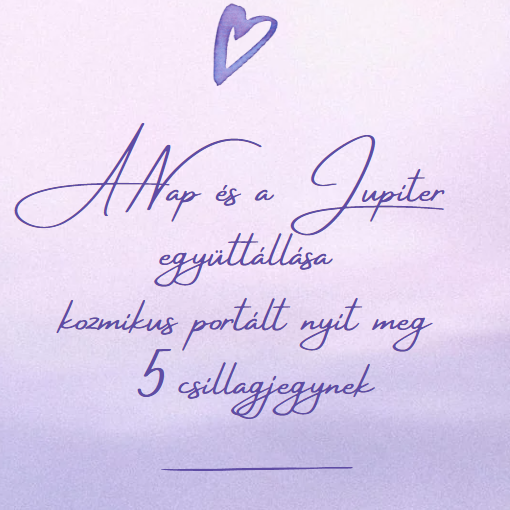 A Nap és a Jupiter
együttállása
kozmikus portált nyit meg
5 csillagjegynek